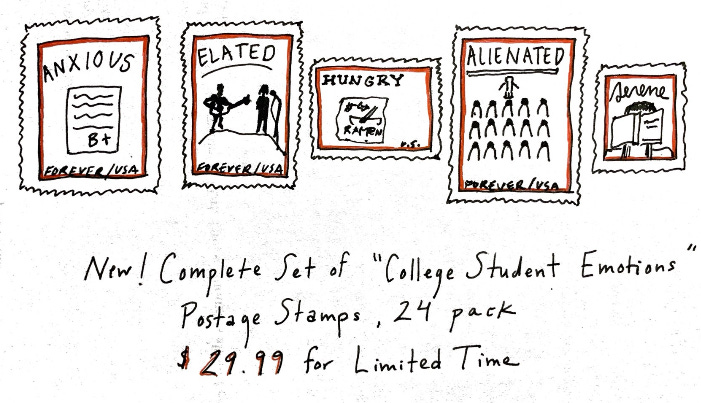 ANXIOUS
B+
FOREVER/USA
ELATED
FOREVER/USA
HUNGRY
RAMEN
U.S.
ALIENATED
FOREVER/USA
serene
New! Complete Set of "College Student Emotions"
Postage Stamps, 24 pack
$29.99 for Limited Time